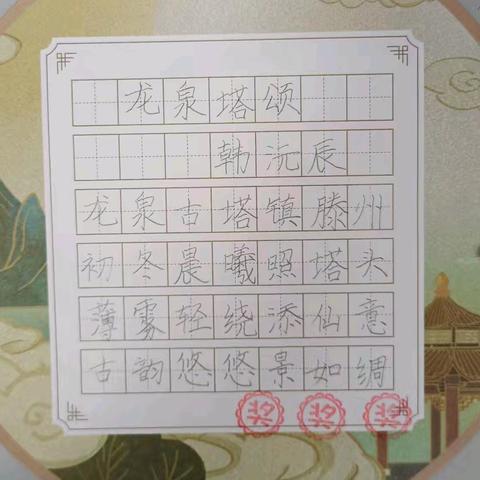 龙泉塔颂
韩沅辰
龙泉古塔镇滕州
初冬晨曦照塔头
薄雾轻绕添仙意
古韵悠悠景如绸
奖 奖 奖